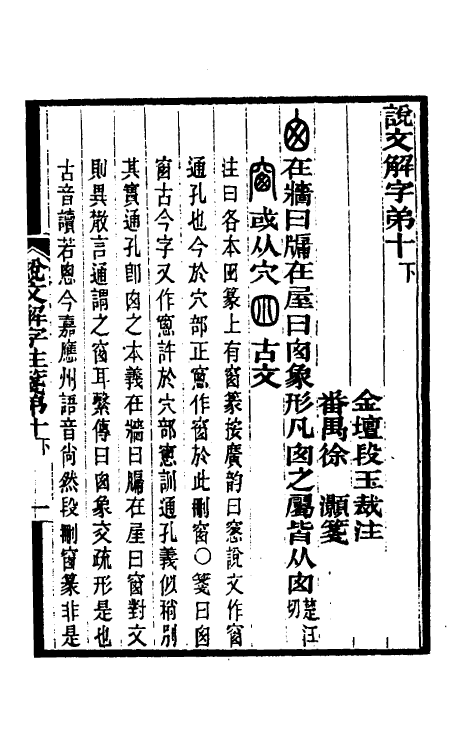 說文解字弟十下
金壇段玉裁注
番禺徐　灝箋
囪在牆曰牖在屋曰囪象形凡囪之屬皆从囪楚江切
窗或从穴囪古文
注曰各本囪篆上有窗篆按廣韵曰窻說文作窗
通孔也今於穴部正窻作窗於此刪窗〇箋曰囪
窗古今字又作窻許於穴部窻訓通孔義似稍別
其實通孔卽囪之本義在牆曰牖在屋曰窗對文
則異散言通謂之窗耳繫傳曰囪象交疏形是也
古音讀若悤今嘉應州語音尙然段刪窗篆非是
說文解字注箋弟十下　一